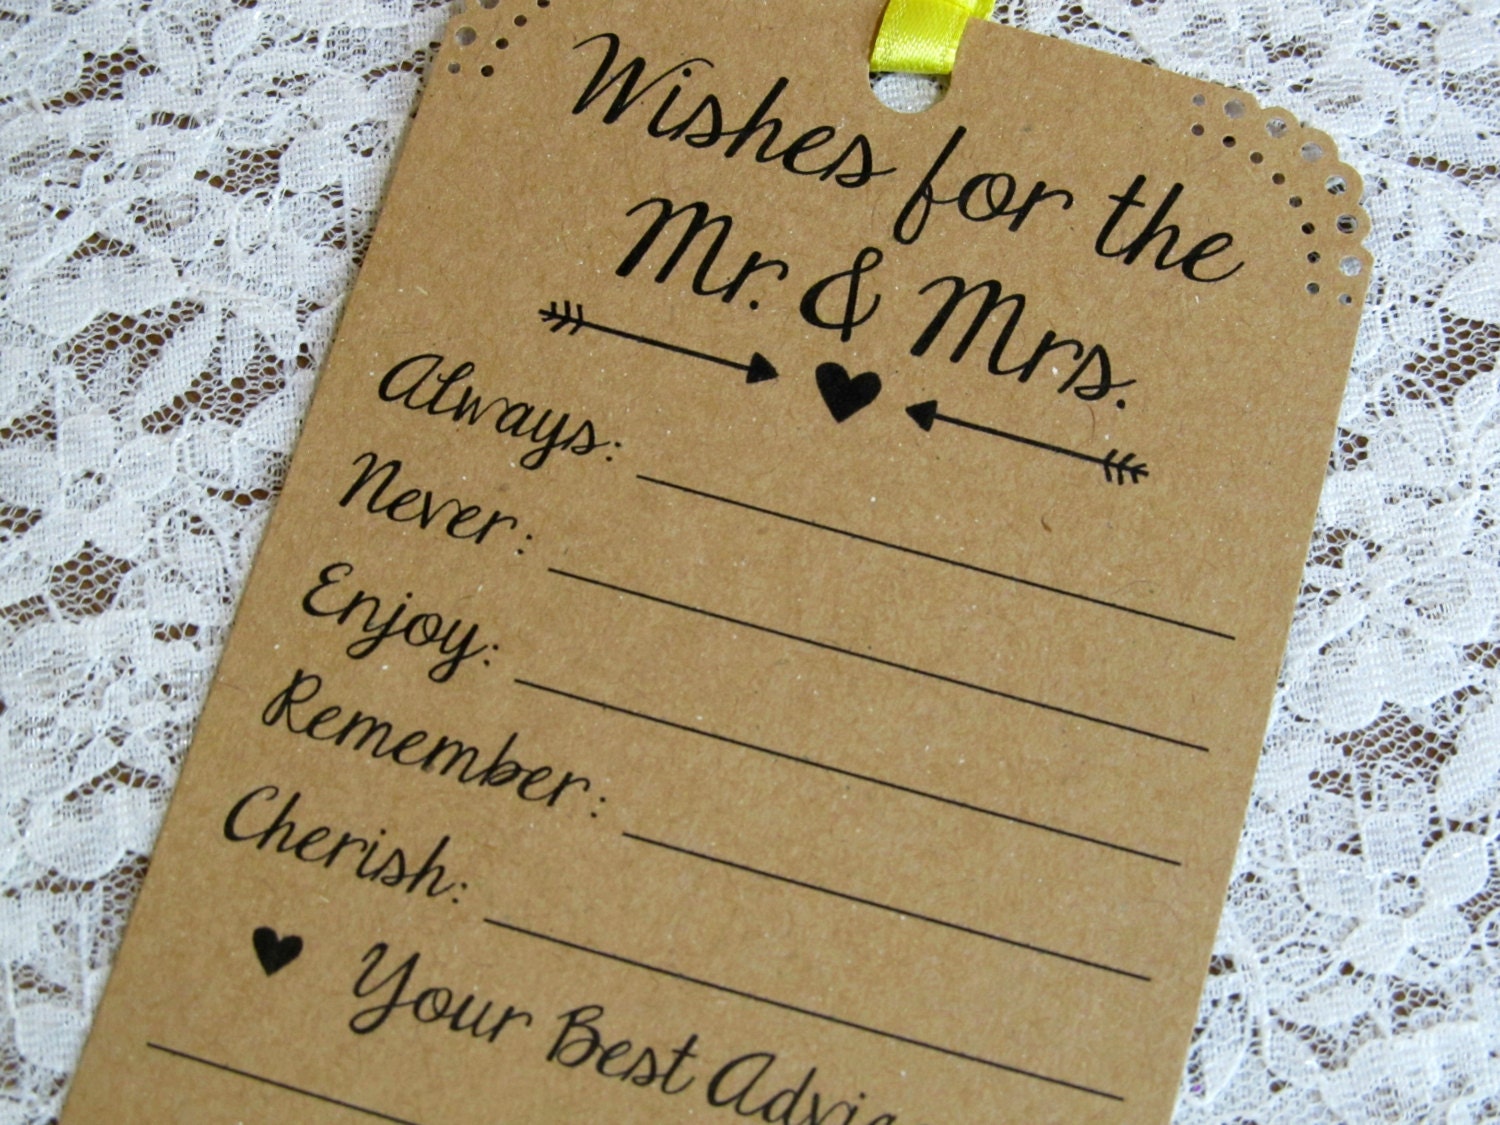 Wishes for the
Mr. & Mrs.
Always:
Never:
Enjoy:
Remember:
Cherish:
Your Best